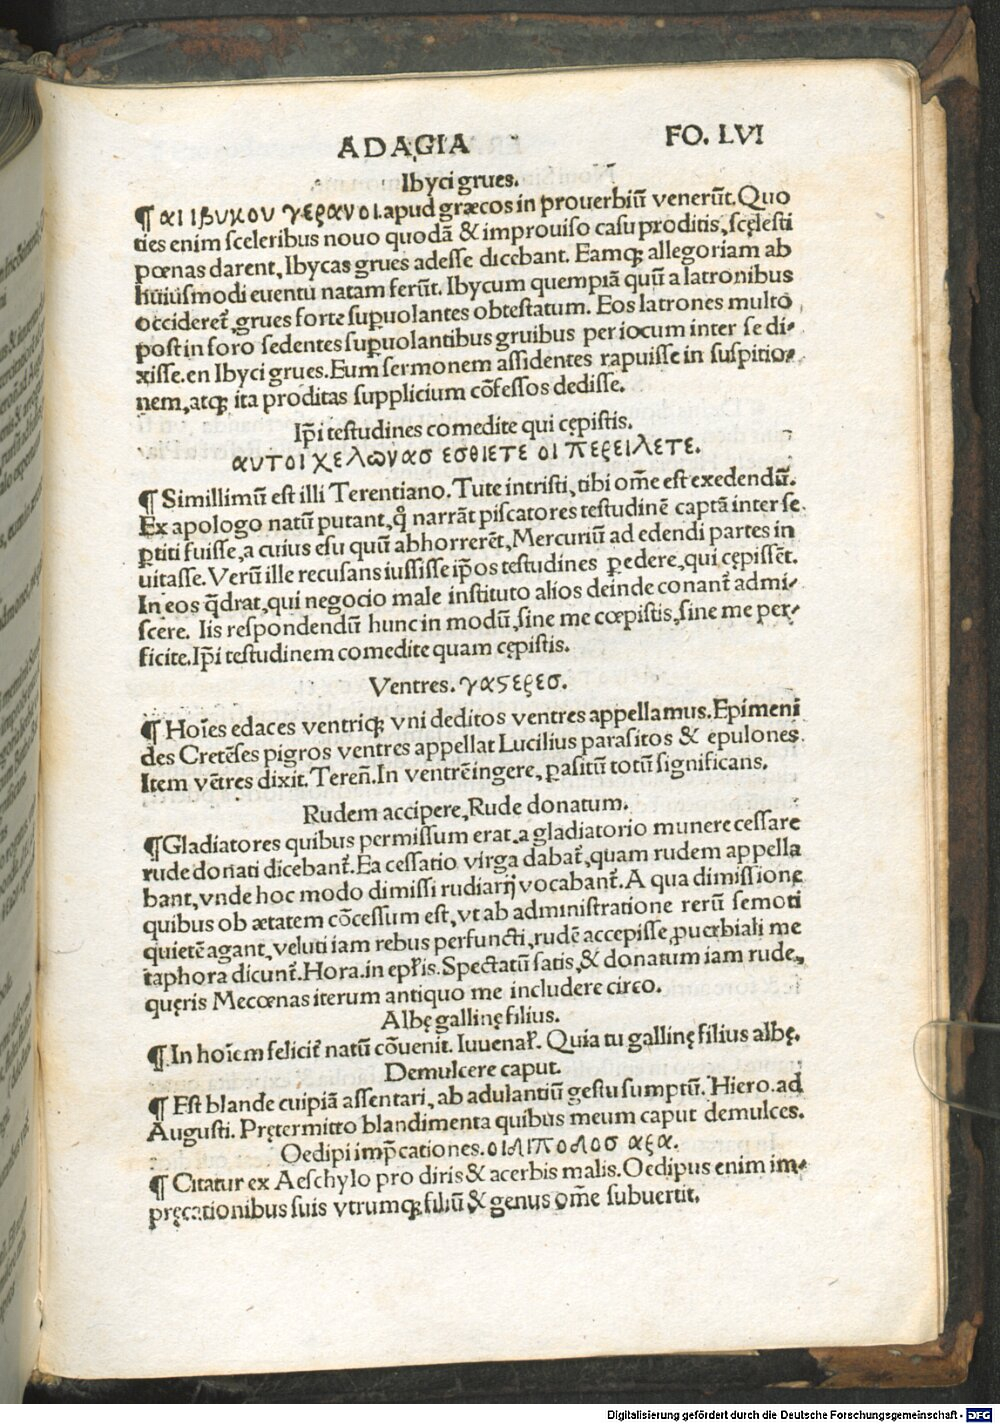 ADAGIA FO. LVI
Ibyci grues.
¶ αι ιβυκου γερανοι. apud græcos in prouerbiū venerūt. Quo
ties enim sceleribus nouo quodā & improuiso casu proditis, scęlesti
pœnas darent, Ibycas grues adesse dicebant. Eamq; allegoriam ab
huiusmodi euentu natam ferūt. Ibycum quempiā quū a latronibus
occideret᷑, grues forte suꝑuolantes obtestatum. Eos latrones multo
post in foro sedentes suꝑuolantibus gruibus per iocum inter se di-
xisse. en Ibyci grues. Eum sermonem assidentes rapuisse in suspitio-
nem, atq; ita proditas supplicium cōfessos dedisse.
Ip̄i testudines comedite qui cępistis.
αυτοι χελωνασ εσθιετε οι περειλετε.
¶ Simillimū est illi Terentiano. Tute intristi, tibi om̄e est exedendū.
Ex apologo natū putant, qͦ narrāt piscatores testudinē captā inter se
ꝑtiti fuisse, a cuius esu quū abhorrerēt, Mercuriū ad edendi partes in
uitasse. Verū ille recusans iussisse ip̄os testudines ꝑedere, qui cępissēt.
In eos q̄drat, qui negocio male instituto alios deinde conant᷑ admi-
scere. Iis respondendū hunc in modū, sine me cœpistis, sine me per-
ficite. Ip̄i testudinem comedite quam cępistis.
Ventres. γαϛερεσ.
¶ Hoīes edaces ventriq; vni deditos ventres appellamus. Epimeni
des Cretēses pigros ventres appellat Lucilius parasitos & epulones.
Item vētres dixit. Tereñ. In ventrē ingere, ꝑasitū totū significans.
Rudem accipere, Rude donatum.
¶ Gladiatores quibus permissum erat. a gladiatorio munere cessare
rude donati dicebant᷑. Ea cessatio virga dabat᷑, quam rudem appella
bant, vnde hoc modo dimissi rudiarij vocabant᷑. A qua dimissione
quibus ob ætatem cōcessum est, vt ab administratione rerū semoti
quietē agant, veluti iam rebus perfuncti, rudē accepisse, ꝓuerbiali me
taphora dicunt᷑. Hora. in epl̄is. Spectatū satis, & donatum iam rude,
quęris Mecœnas iterum antiquo me includere circo.
Albę gallinę filius.
¶. In hoīem felicit᷑ natū cōuenit. Iuuenal̄. Quia tu gallinę filius albę.
Demulcere caput.
¶ Est blande cuipiā assentari, ab adulantiū gestu sumptū. Hiero. ad
Augusti. Prętermitto blandimenta quibus meum caput demulces.
Oedipi imp̄cationes. οιλιπολοσ αρα.
¶ Citatur ex Aeschylo pro diris & acerbis malis. Oedipus enim im-
pręcationibus suis vtrumq; filiū & genus om̄e subuertit.
Digitalisierung gefördert durch die Deutsche Forschungsgemeinschaft - DFG